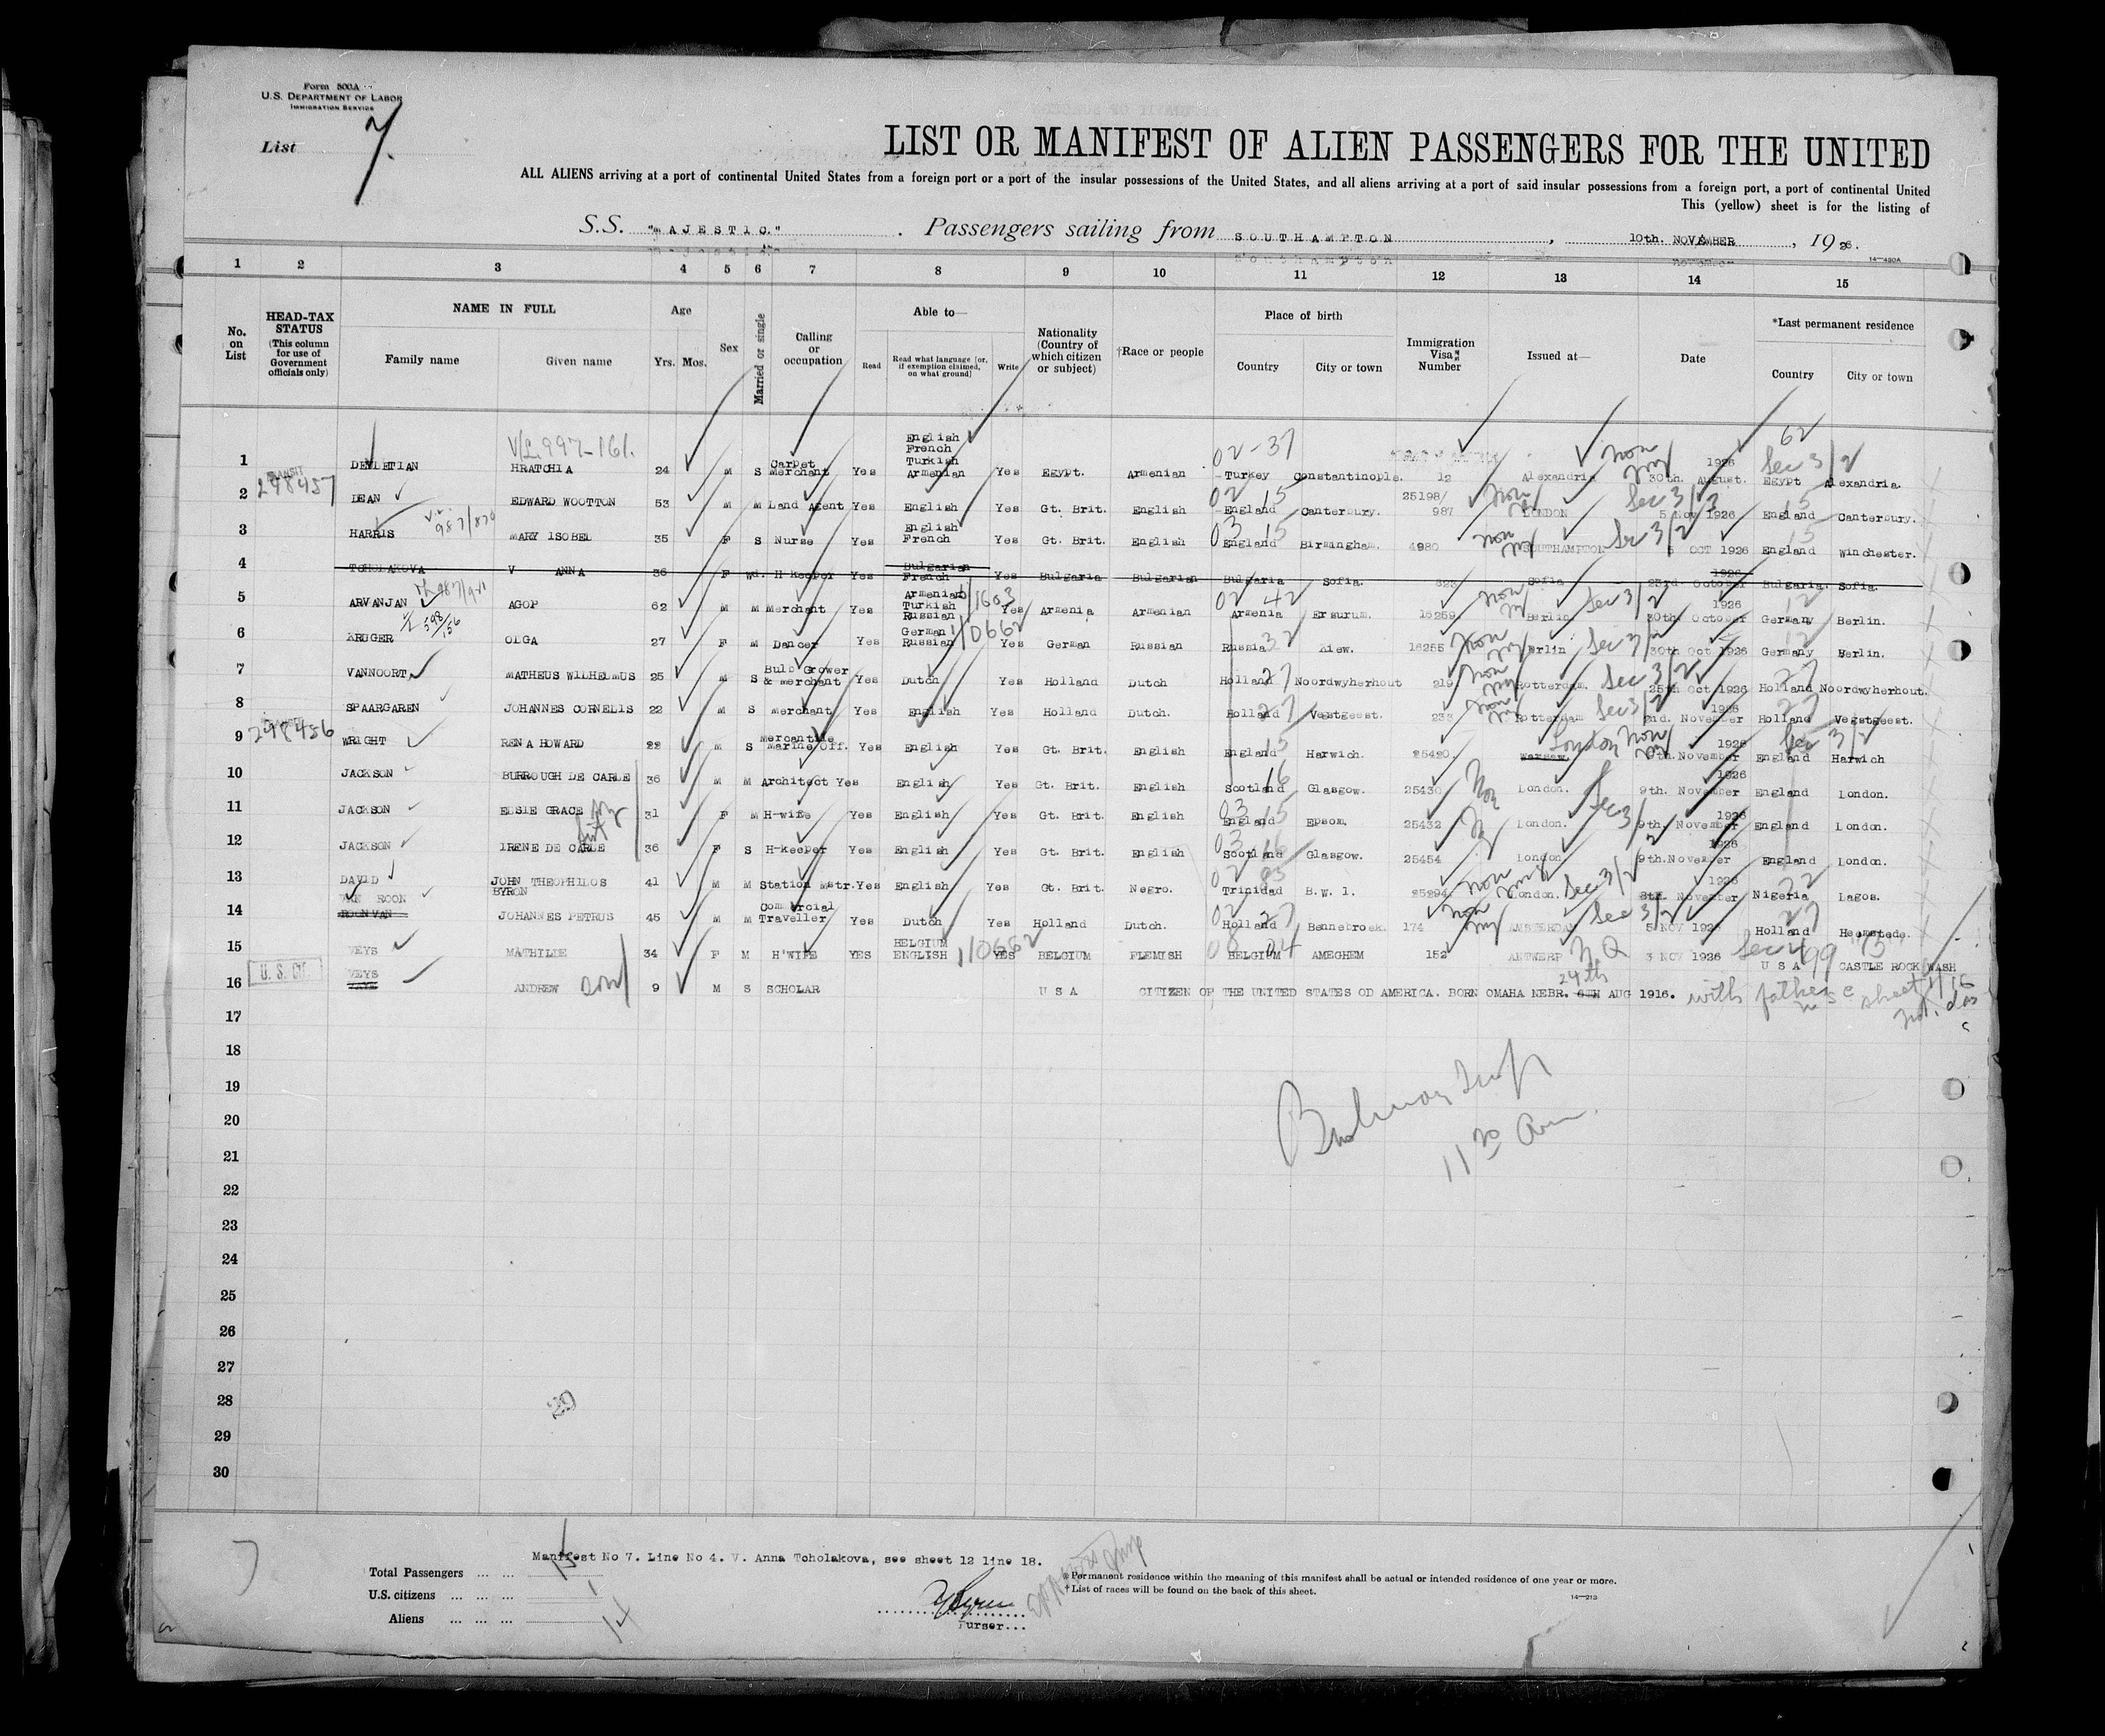 Form 500A
U.S. DEPARTMENT OF LABOR
IMMIGRATION SERVICE
List 7.
LIST OR MANIFEST OF ALIEN PASSENGERS FOR THE UNITED
ALL ALIENS arriving at a port of continental United States from a foreign port or a port of the insular possessions of the United States, and all aliens arriving at a port of said insular possessions from a foreign port, a port of continental United
This (yellow) sheet is for the listing of
S.S. "MAJESTIC." Passengers sailing from SOUTHAMPTON, 10th. NOVEMBER, 1926.
14-430A
1 2 3 4 5 6 7 8 9 10 11 12 13 14 15
No. on List
HEAD-TAX STATUS (This column for use of Government officials only)
NAME IN FULL
Family name Given name
Age
Yrs. Mos.
Sex
Married or single
Calling or occupation
Able to—
Read Read what language [or, if exemption claimed, on what ground] Write
Nationality (Country of which citizen or subject)
†Race or people
Place of birth
Country City or town
Immigration Visa Number
Issued at—
Date
*Last permanent residence
Country City or town
1 DEVLETIAN HRATCHIA 24 M S Carpet Merchant Yes English French Turkish Armenian Yes Egypt. Armenian Turkey Constantinople. 12 Alexandria 30th. August. 1926 Egypt Alexandria.
TRANSIT 298457
2 DEAN EDWARD WOOTTON 53 M M Land Agent Yes English Yes Gt. Brit. English England Canterbury. 25198/987 LONDON 5 Nov 1926 England Canterbury.
3 HARRIS MARY ISOBEL 35 F S Nurse Yes English French Yes Gt. Brit. English England Birmingham. 4980 SOUTHAMPTON OCT 1926 England Winchester.
4 TCHOLAKOVA V ANNA 36 F Wd. H-keeper Yes Bulgarian French Yes Bulgaria Bulgarian Bulgaria Sofia. 623 Sofia 23rd October 1926 Bulgaria. Sofia.
5 ARVANJAN AGOP 62 M M Merchant Yes Armenian Turkish Russian Yes Armenia Armenian Armenia Ersurum. 16259 Berlin 30th October 1926 Germany Berlin.
6 KRUGER OLGA 27 F M Dancer Yes German Russian Yes German Russian Russia Kiew. 16255 Berlin 30th Oct 1926 Germany Berlin.
7 VANNOORT MATHEUS WILHELMUS 25 M S Bulb Grower & merchant Yes Dutch Yes Holland Dutch Holland Noordwyherhout 219 Rotterdam. 25th Oct 1926 Holland Noordwyherhout.
8 SPAARGAREN JOHANNES CORNELIS 22 M S Merchant Yes English Yes Holland Dutch. Holland Vegstgeest. 233 Rotterdam 2nd. November 1926 Holland Vegstgeest.
298456
9 WRIGHT RENA HOWARD 22 M S Mercantile Marine Off. Yes English Yes Gt. Brit. English England Harwich. 25420 Warsaw. London 9th. November 1926 England Harwich
10 JACKSON BURROUGH DE CARLE 36 M M Architect Yes English Yes Gt. Brit. English Scotland Glasgow. 25430 London. 9th. November 1926 England London.
11 JACKSON ELSIE GRACE 31 F M H-wife Yes English Yes Gt. Brit. English England Epsom. 25432 London. 9th. November 1926 England London.
12 JACKSON IRENE DE CARLE 36 F S H-keeper Yes English Yes Gt. Brit. English Scotland Glasgow. 25454 London 9th.November 1926 England London.
13 DAVID JOHN THEOPHILOS BYRON 41 M M Station Mstr. Yes English Yes Gt. Brit. Negro. Trinidad B.W.I. 25294 London. 8th. November 1926 Nigeria Lagos.
14 VAN ROON ROONVAN JOHANNES PETRUS 45 M M Commercial Traveller Yes Dutch Yes Holland Dutch. Holland Bennebroek. 174 AMSTERDAM 5 NOV 1926 Holland Heemstede.
15 VEYS MATHILDE 34 F M H'WIFE YES BELGIUM ENGLISH YES BELGIUM FLEMISH BELGIUM AMEGHEM 152 ANTWERP N Q 3 NOV 1926 U S A CASTLE ROCK WASH
U. S. CIT.
16 VEYS ANDREW son 9 M S SCHOLAR U S A CITIZEN OF THE UNITED STATES OD AMERICA. BORN OMAHA NEBR. 24th AUG 1916. with father sheet
17
18
19
20
11 30 am
21
22
23
24
25
26
27
28
29
29
30
Manifest No 7. Line No 4. V. Anna Tcholakova, see sheet 12 line 18.
Total Passengers ... ... 15
U.S. citizens ... ... ... 1
Aliens ... ... ... 14
Purser...
*Permanent residence within the meaning of this manifest shall be actual or intended residence of one year or more.
†List of races will be found on the back of this sheet.
14-213